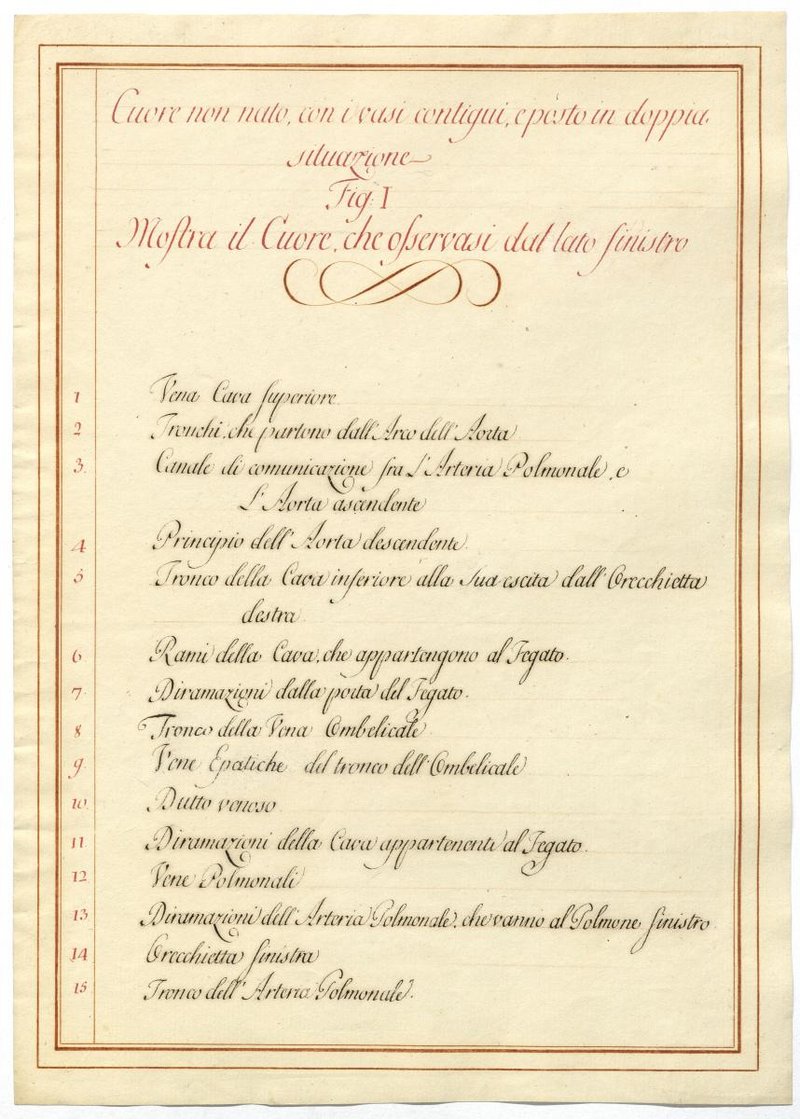 Cuore non nato, con i vasi contigui, e posto in doppia
situazione
Fig. I
Mostra il Cuore, che osservasi dal lato sinistro
1 Vena Cava superiore
2 Tronchi, che partono dall'Arco dell'Aorta
3. Canale di comunicazione fra L'Arteria Polmonale, e
L'Aorta ascendente
4 Principio dell'Aorta descendente
5 Tronco della Cava inferiore alla sua escita dall'Orecchietta
destra
6 Rami della Cava, che appartengono al Fegato.
7 Diramazioni dalla porta del Fegato.
8 Tronco della Vena Ombelicale
9. Vene Epatiche del tronco dell'Ombelicale
10 Dutto venoso
11 Diramazioni della Cava appartenenti al Fegato.
12 Vene Polmonali
13 Diramazioni dell'Arteria Polmonale, che vanno al Polmone sinistro
14 Orecchietta sinistra
15 Tronco dell'Arteria Polmonale.